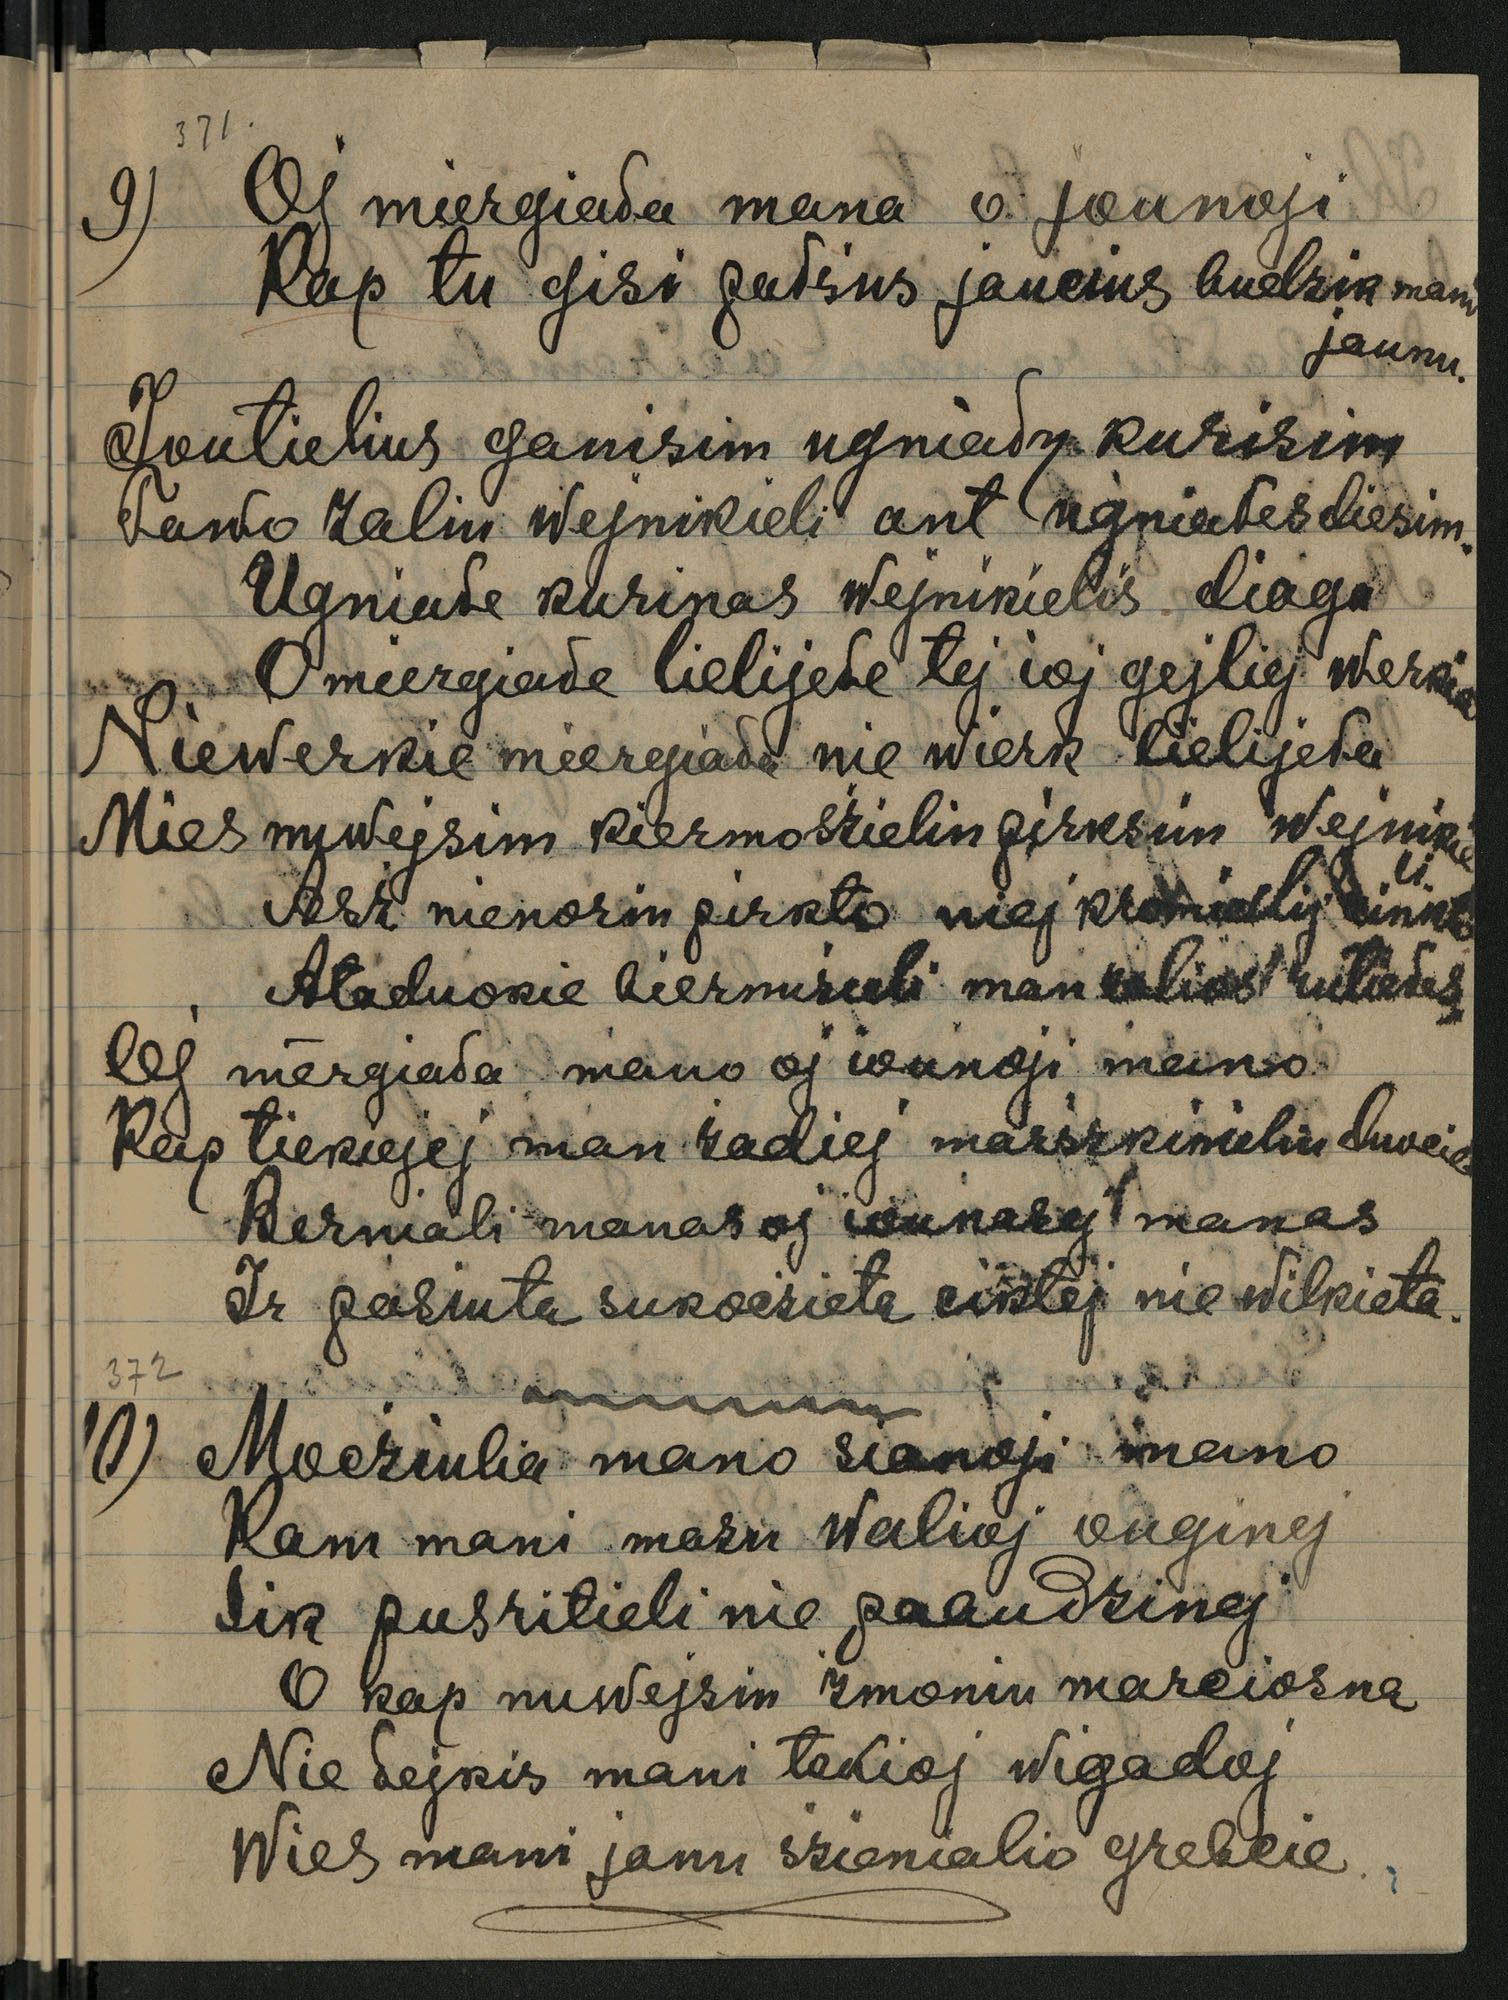 371.
9) Oj miergiada mana o jounoji
Kap tu gisi padsius jaucius budzik mani
jaunu.
Joutielius ganisim ugniady kurisim
Tawo zaliu wejnikieli ant ugniades diesim.
Ugniade kurinas wejnikielis diaga
O miergiade lielijede tej ioj gejliej werkia
Niewerkie miergiada nie wierk lielijeda
Mies nuwejsim kiermoszielin pirksim wejnikie
li
Asz nienorin pirkto niej kromielij
Ataduokie biernuziali man zalios rutiades
Oj mergiada mano oj iounoji mano
Kap tiekiejej man zadiej marszkinieliu
Berniali manas oj iounasej manas
Ir pasiuta sukocziata ciktej nie wilkieta.
372
10) Mocziulia mano sianoji mano
Kam mani mazu walioj ouginej
Sik pusritieli nie paaudzinej
O kap nuwejsin zmoniu marciosna
Nie bejkis mani tokioj wigadoj
Wies mani janu szienialio grebcie